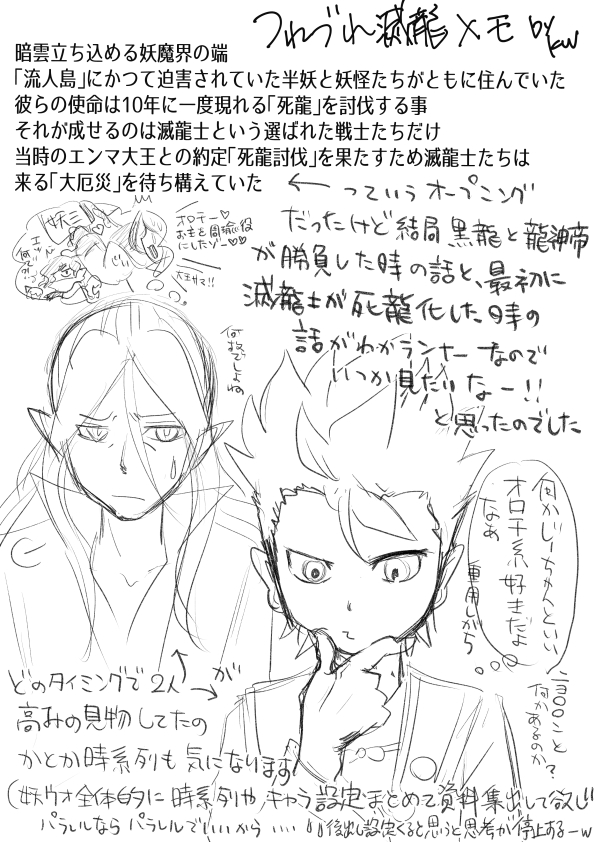 つれづれ滅龍メモ by kw
暗雲立ち込める妖魔界の端
「流人島」にかつて迫害されていた半妖と妖怪たちがともに住んでいた
彼らの使命は10年に一度現れる「死龍」を討伐する事
それが成せるのは滅龍士という選ばれた戦士たちだけ
当時のエンマ大王との約定「死龍討伐」を果たすため滅龍士たちは
来る「大厄災」を待ち構えていた
←っていうオープニング
だったけど結局黒龍と龍神帝
が勝負した時の話と、最初に
滅龍士が死龍化した時の
話がわかランナーなので
いつか見たいなー!!
と思ったのでした
妖三
オロチー♡
おもを周瑜役
にしたゾー♡♡
大王サマ!!
何故でしょね
何かじーちゃんといい
オロチ系好きだよ
なぁ
重用しがち
何かあるのか?
どのタイミングで2人が
高みの見物してたの
かとか時系列も気になります
(妖ウォ全体的に時系列やキャラ設定まとめて資料集出して欲しい
パラレルならパラレルでいいから‥‥
後出し設定くると思うと思考が停止するーw